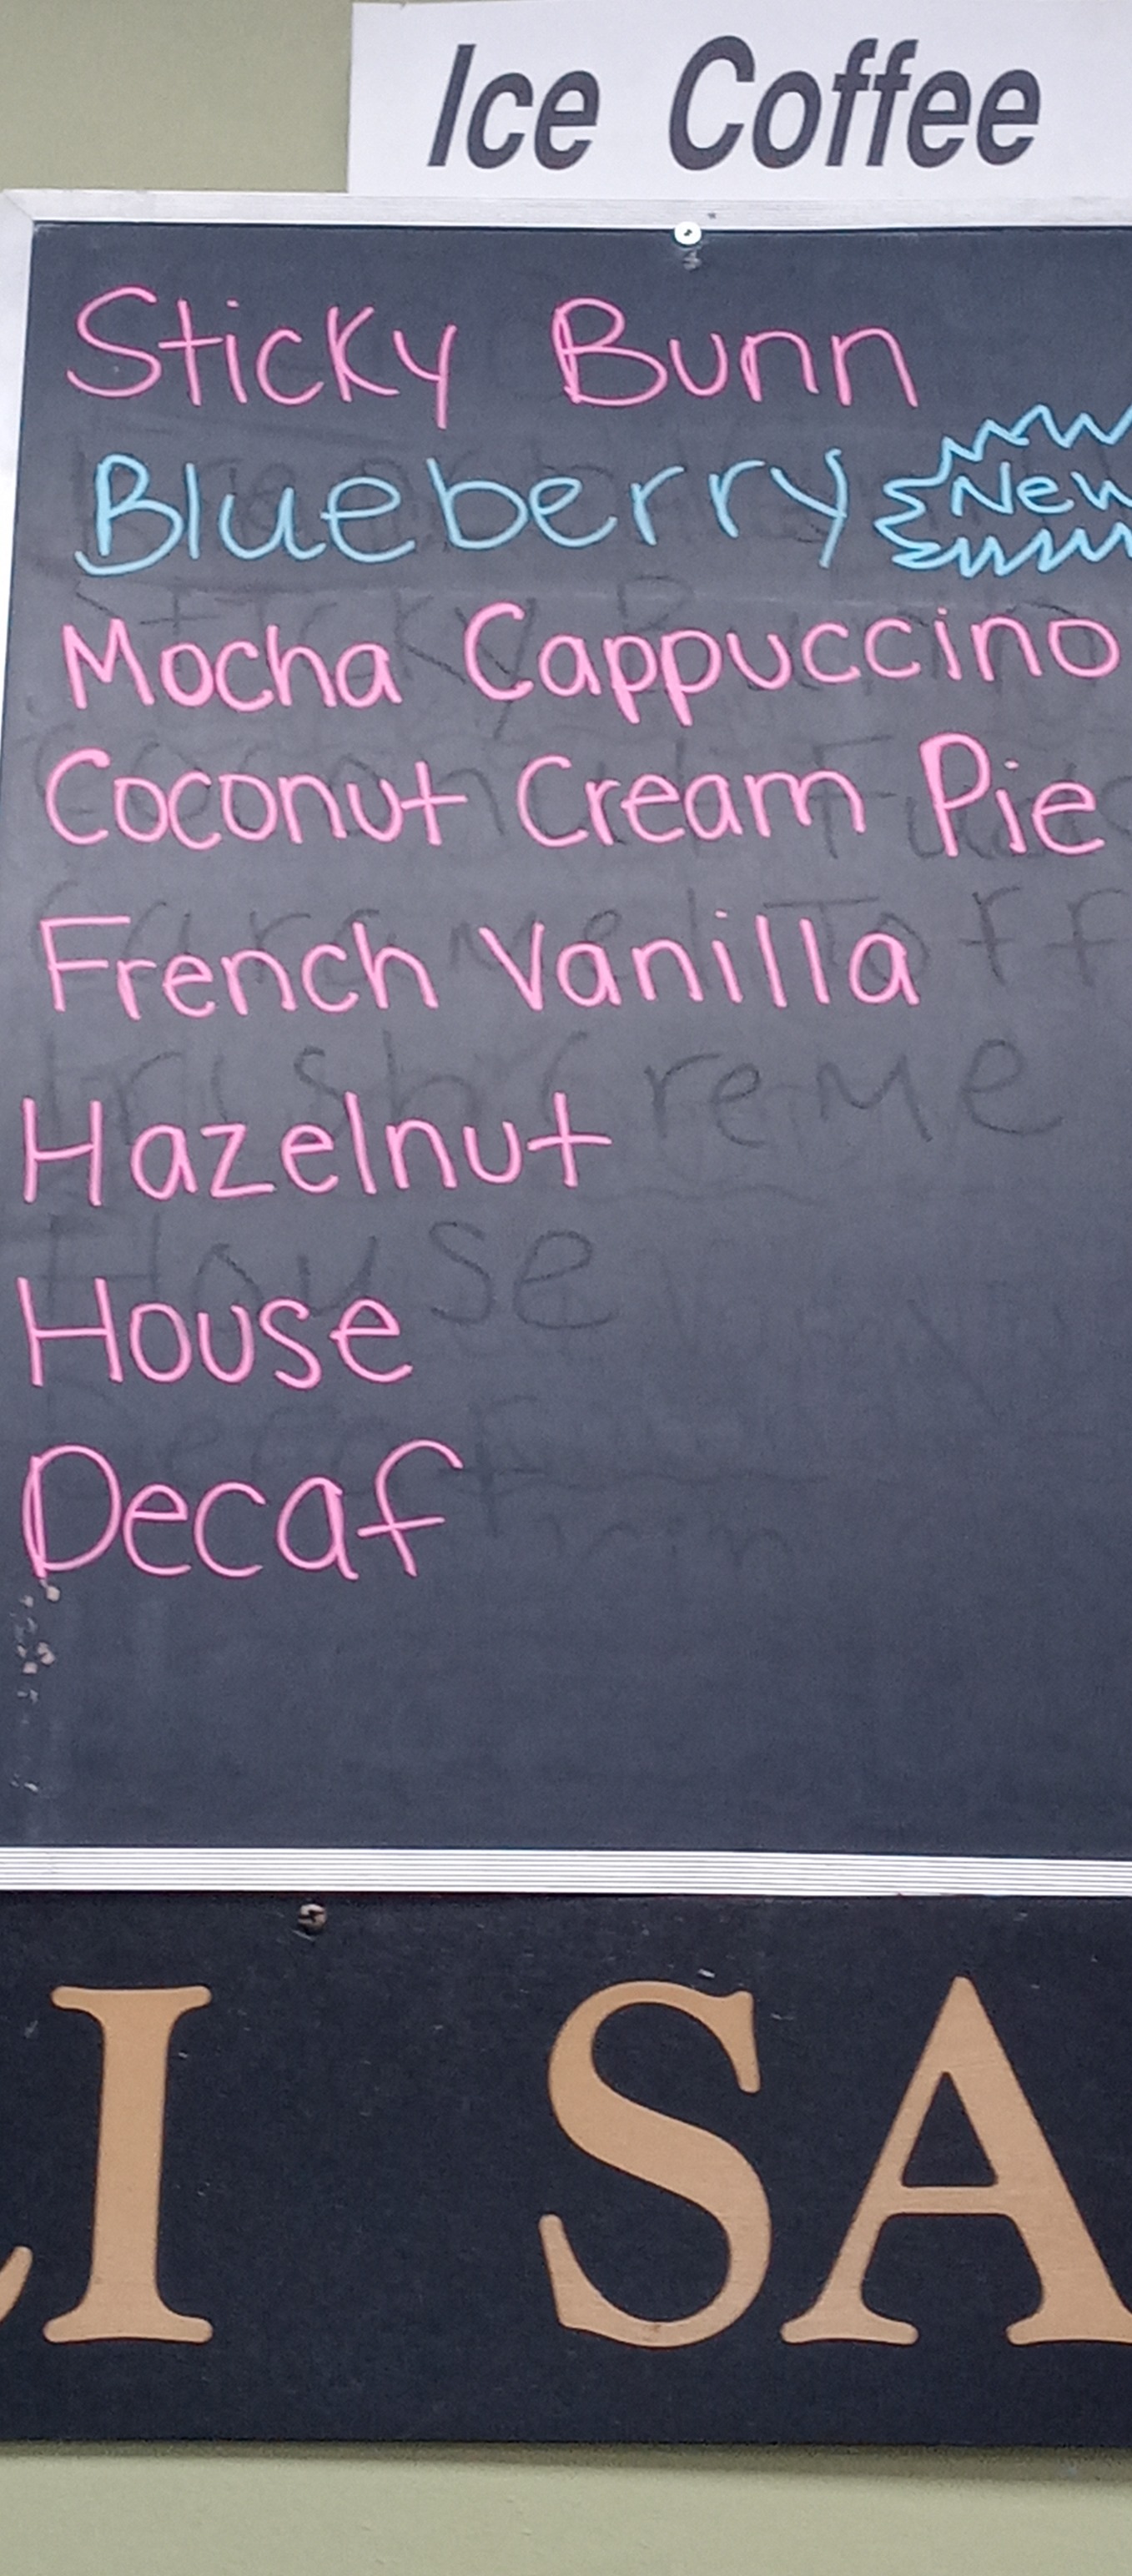 Ice Coffee
Sticky Bunn
Blueberry New
Mocha Cappuccino
Coconut Cream Pie
French Vanilla
Irish Creme
Hazelnut
House
House
Decaf
Decaf
I SA